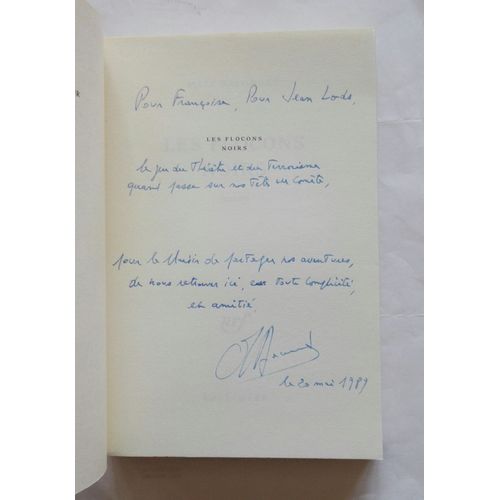 Pour Françoise, Pour Jean Louis,
LES FLOCONS
NOIRS
le jeu du Théâtre et du Terrorisme
quand passe sur nos têtes une Comète,
pour le plaisir de partager nos aventures,
de nous retrouver ici, en toute complicité,
en amitié
le 20 mai 1989